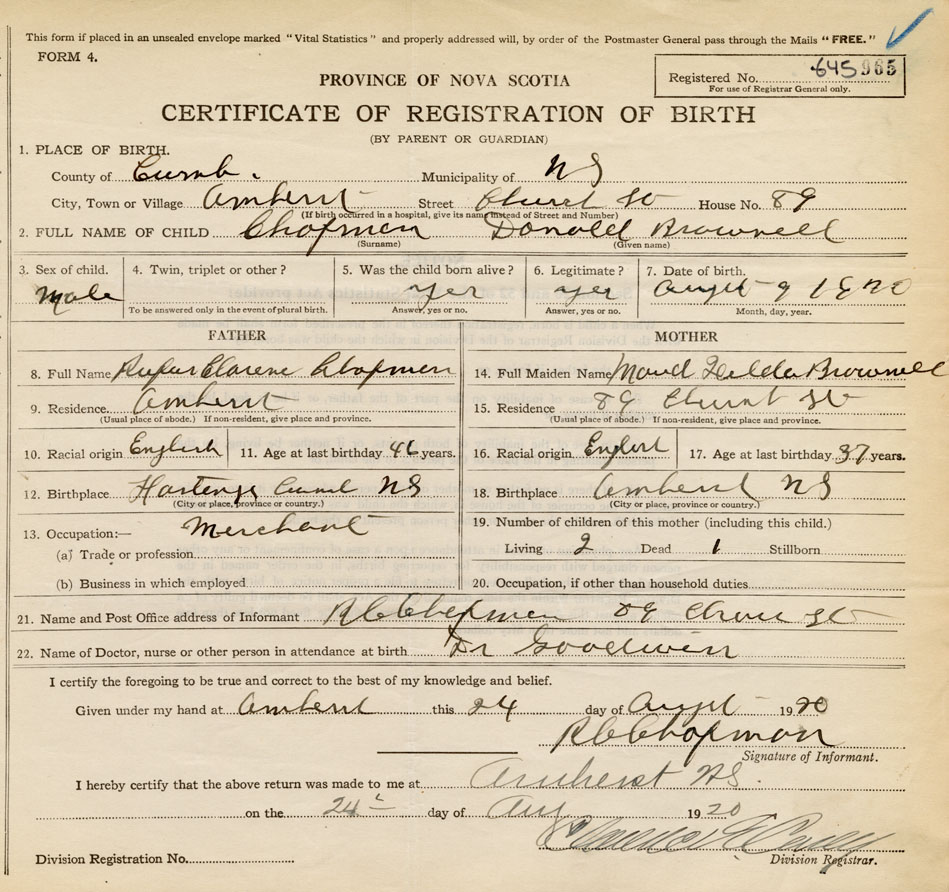 This form if placed in an unsealed envelope marked "Vital Statistics" and properly addressed will, by order of the Postmaster General pass through the Mails "FREE."
FORM 4.
Registered No. 645 965
For use of Registrar General only.
PROVINCE OF NOVA SCOTIA
CERTIFICATE OF REGISTRATION OF BIRTH
(BY PARENT OR GUARDIAN)
1. PLACE OF BIRTH.
County of Cumb. Municipality of NS
City, Town or Village Amherst Street Church St House No. 89
(If birth occurred in a hospital, give its name instead of Street and Number)
2. FULL NAME OF CHILD Chapman Donald Brownell
(Surname) (Given name)
3. Sex of child. 4. Twin, triplet or other? 5. Was the child born alive? 6. Legitimate? 7. Date of birth.
Male yes yes Augst 9 1920
To be answered only in the event of plural birth. Answer, yes or no. Answer, yes or no. Month, day, year.
FATHER MOTHER
8. Full Name Rufus Clarence Chapman 14. Full Maiden Name Maud Brownell
9. Residence. Amherst 15. Residence 89 Church St
(Usual place of abode.) If non-resident, give place and province. (Usual place of abode.) If non-resident, give place and province.
10. Racial origin English 11. Age at last birthday 46 years. 16. Racial origin English 17. Age at last birthday 37 years.
12. Birthplace Hastings Cumb NS 18. Birthplace Amherst NS
(City or place, province or country.) (City or place, province or country.)
13. Occupation:— Merchant 19. Number of children of this mother (including this child.)
(a) Trade or profession Living 2 Dead 1 Stillborn
(b) Business in which employed 20. Occupation, if other than household duties
21. Name and Post Office address of Informant R C Chapman 89 Church St
22. Name of Doctor, nurse or other person in attendance at birth Dr Goodwin
I certify the foregoing to be true and correct to the best of my knowledge and belief.
Given under my hand at Amherst this 24 day of Augst 1920
R C Chapman
Signature of Informant.
I hereby certify that the above return was made to me at Amherst NS.
on the 24 day of Aug 1920
Division Registration No. Division Registrar.